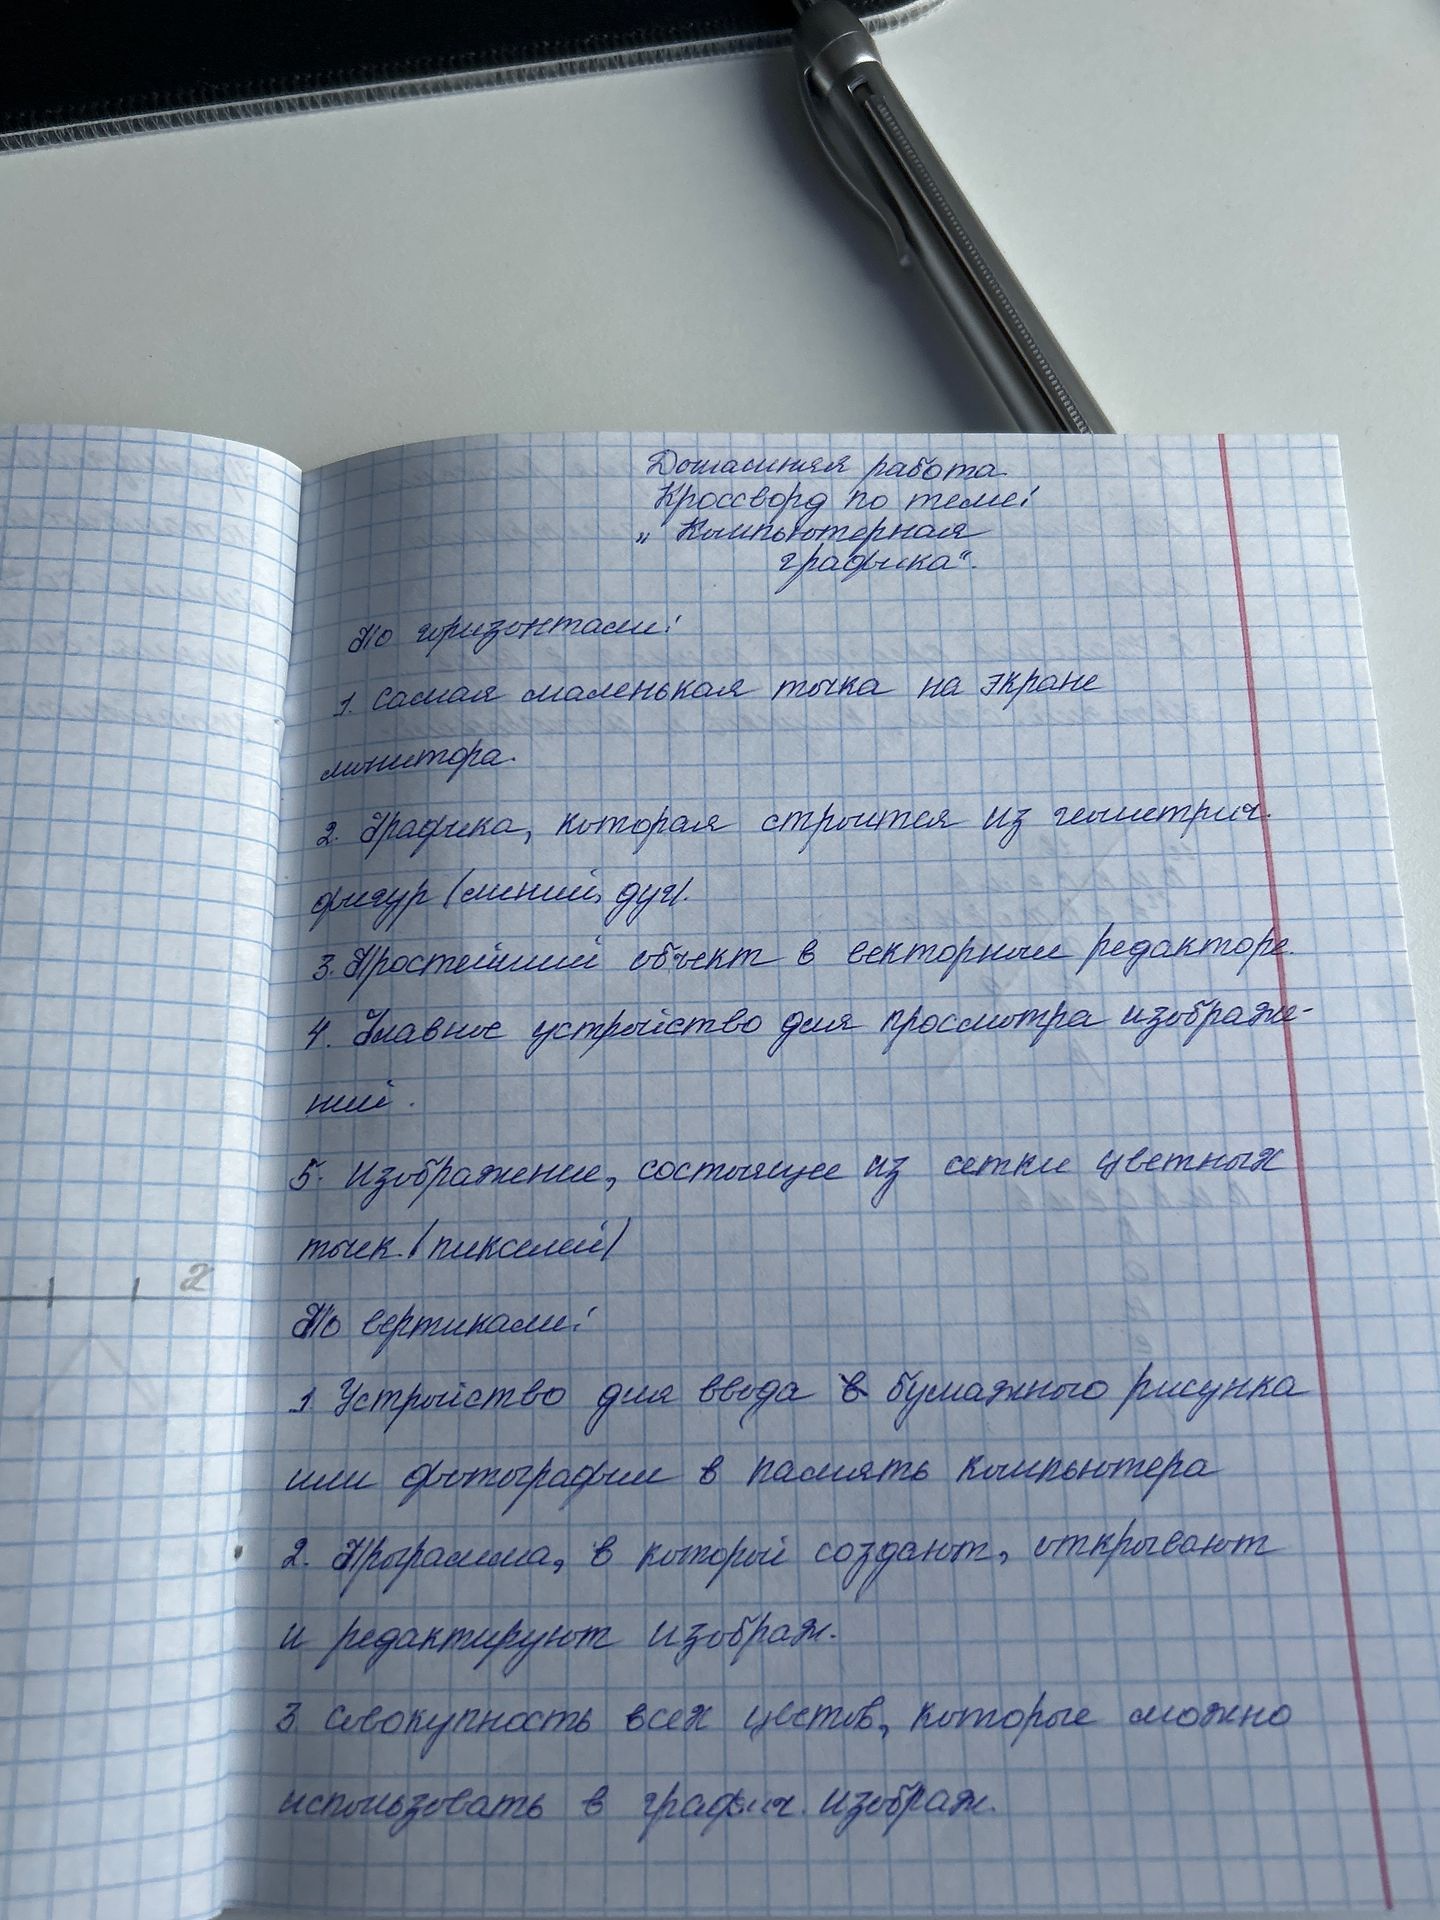 Домашняя работа
Кроссворд по теме:
„Компьютерная
графика“.
По горизонтали:
1. Самая маленькая точка на экране
монитора.
2. Графика, которая строится из геометрич.
фигур (линий, дуг).
3. Простейший объект в векторном редакторе.
4. Главное устройство для просмотра изображе-
ний.
5. Изображение, состоящее из сетки цветных
точек. (пикселей)
2
По вертикали:
1. Устройство для ввода в бумажного рисунка
или фотографии в память компьютера
2. Программа, в которой создают, открывают
и редактируют изображ.
3 Совокупность всех цветов, которые можно
использовать в графич. изображ.